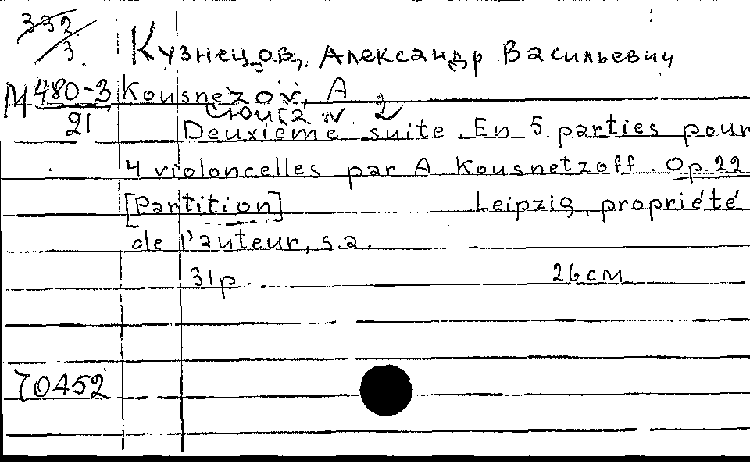 392/3.
Кузнецов, Александр Васильевич
М 480-3/21
Kousnezov, A
Сюита N 2
Deuxième suite. En 5 parties pour
4 violoncelles par A Kousnetzoff. Op. 22
[Partition] Leipzig, propriété
de l'auteur, s.a.
31p. 26см
70452